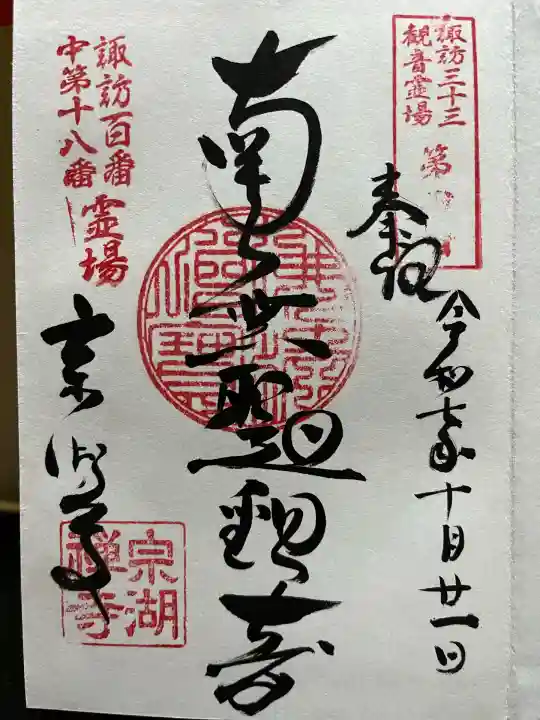 諏訪三十三
観音霊場
第
奉拝
令和七年十月廿一日
南無聖観音
諏訪百番霊場
中第十八番
宗湖寺
宗湖
禅寺